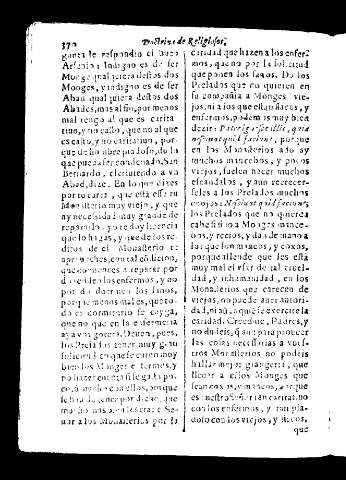 370 Doctrina de Religiosos,
gunta le respondio el buen
Arsenio: Indigno es de ser
Monge qualquiera destos dos
Monges, y indigno es de ser
Abad qualquiera destos dos
Abades, mas al fin, por menos
mal tengo al que es carita
tiuo, y no casto, que no al que
es casto, y no caritatiuo, por-
que de lo
que puede ser condenado. San
Bernardo, escriuiendo a vn
Abad, dize: En lo que dizes
por tu carta, que esta esse tu
Monesterio muy viejo, y que
ay necessidad muy grande de
repararlo, yo te doy licencia
que lo hagas, y que de los re
ditos de el Monasterio te
aproueches, con tal cõdicion,
que comiences a reparar por
do estàn los enfermos, y no
por do duermen los sanos,
porque menos mal es, que to-
do el dormitorio se cayga,
que no que en la enfermeria
aya vna gotera. Deuen, pues,
los Prelados tener muy gran
solicitud en que se curen muy
bien los Monges enfermos, y
no hazer cuenta si se gasta po-
co, ò mucho con ellos, porque
se ha de tener por dicho, que
mucho mas
uir a los Monasterios por la
caridad que hazen a los enfer-
mos, que no por la solicitud
que ponen los sanos. De los
Prelados que no quieren en
su compañia a Monges vie-
jos, ni a los que estàn flacos, y
enfermos, podemos muy bien
dezir: Pater ignosce illis, quia
nesciunt quid faciunt, porque
en los Monasterios ado ay
muchos mancebos, y pocos
viejos, suelen nacer muchos
escandalos, y aun recrecer-
seles a los Prelados muchos
enojos: Nesciunt quid faciunt,
los Prelados que no quieren
cabe si sino a Monges mance-
bos, y recios, y dan de mano a
los que son mancos, y coxos,
porque allende que les està
muy mal el vsar de tal cruel-
dad, y inhumanidad, en los
Monasterios que carecen de
viejos, no puede auer autori-
dad, ni aun à que se exercite la
caridad. Creedme, Padres, y
no dudeis, q̃ aun para proueer
las cosas necessarias a vues-
tros Monasterios no podeis
hallar mejor grangeria, que
lleuar a ellos Monges que
sean coxos, y mancos, porque
es nuestro Señor tan caritatiuo
con los enfermos, y tan pia-
doso con los viejos, y flacos,
que